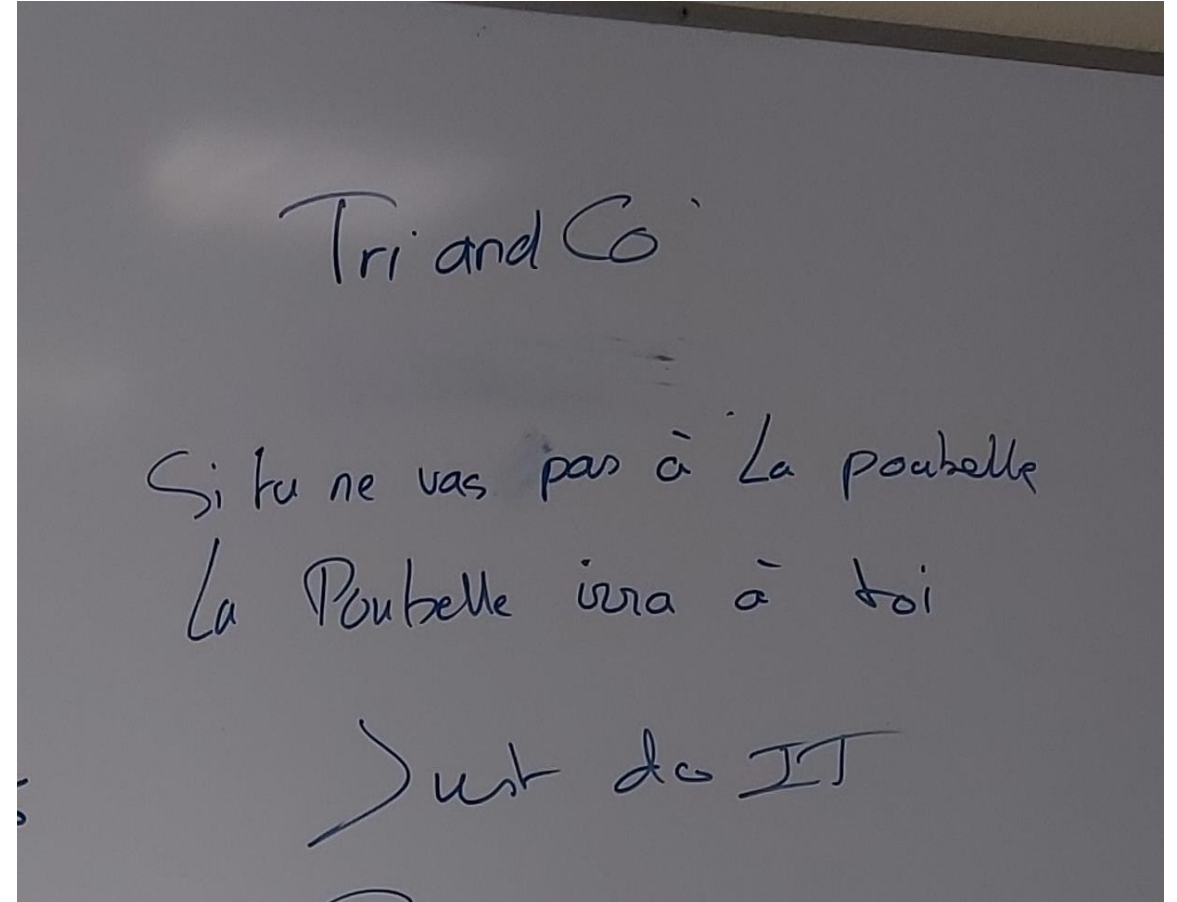 Tri and Co
Si tu ne vas pas à La poubelle
La Poubelle irra à toi
Just do IT